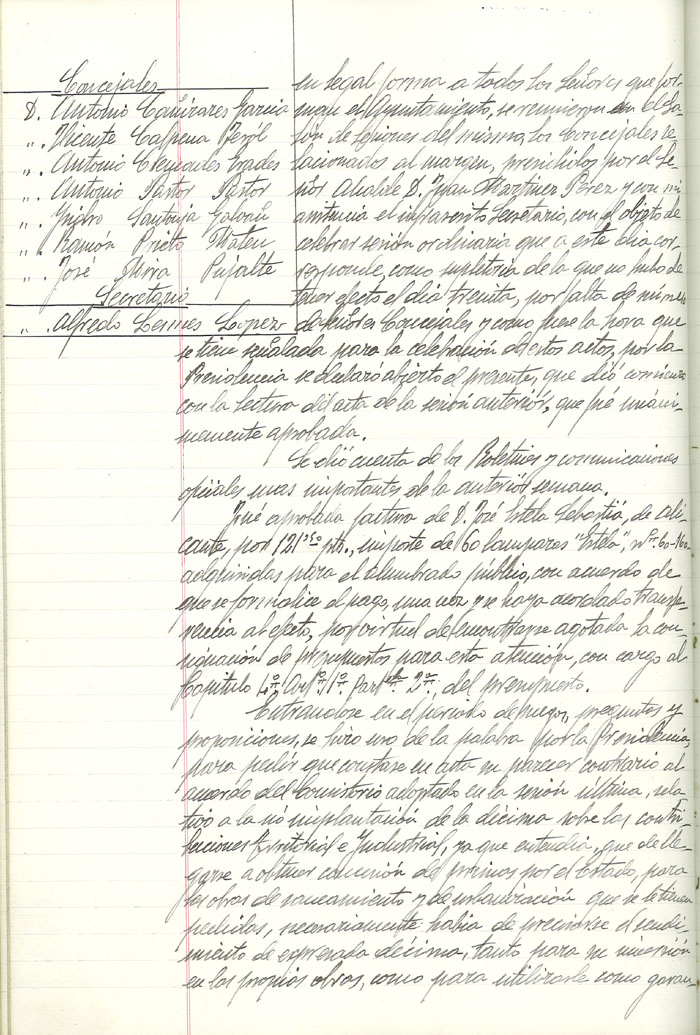 Concejales
D. Antonio Cañizares Garcia
". Vicente Calpena Perol
". Antonio Clemades Grades
". Antonio Pastor Pastor
". Ysidro Santonja Galvañ
". Ramón Prieto Mateu
". José Mira Pujalte
Secretario
". Alfredo Lesmes Lopez
en legal forma a todos los Señores que for-
man el Ayuntamiento, se reunieron en el Sa-
lón de sesiones del mismo, los Concejales re-
lacionados al margen, presididos por el Se-
ñor Alcalde D. Juan Martinez Perez y con mi
asistencia el infrascrito Secretario, con el objeto de
celebrar sesión ordinaria que a este dia cor-
responde, como supletoria de la que no hubo de
tener efecto el dia treinta, por falta de número
de Señores Concejales y como fuese la hora que
se tiene señalada para la celebración de estos actos, por la
Presidencia se declaró abierto el presente, que dió comienzo
con la lectura del acta de la sesión anterior, que fué unáni-
memente aprobada.
Se dió cuenta de los Boletines y comunicaciones
oficiales mas importantes de la anterior semana.
Fué aprobada factura de D. José Estela Sebastiá, de Ali-
cante, por 121 pts., importe de 60 lamparas "Estela",
adquiridas para el alumbrado público, con acuerdo de
que se formalice el pago, una vez y se haya acordado transfe-
rencia al efecto, por virtud de encontrarse agotada la con-
signación de presupuestos para esta atención, con cargo al
Capitulo Artº 1º Partda 2ª, del presupuesto.
Entrandose en el periodo de ruegos, preguntas y
proposiciones, se hizo uso de la palabra por la Presidencia,
para pedir que constase en acta su parecer contrario al
acuerdo del Consistorio adoptado en la sesión última, rela-
tivo a la nó implantación de la décima sobre las contri-
buciones Territorial e Industrial, ya que entendia, que de lle-
garse a obtener concesión de primas por el Estado, para
las obras de saneamiento y de urbanización que se le tienen
pedidas, necesariamente habia de precisarse el rendi-
miento de expresada décima, tanto para su inversión
en las propias obras, como para utilizarle como garan-